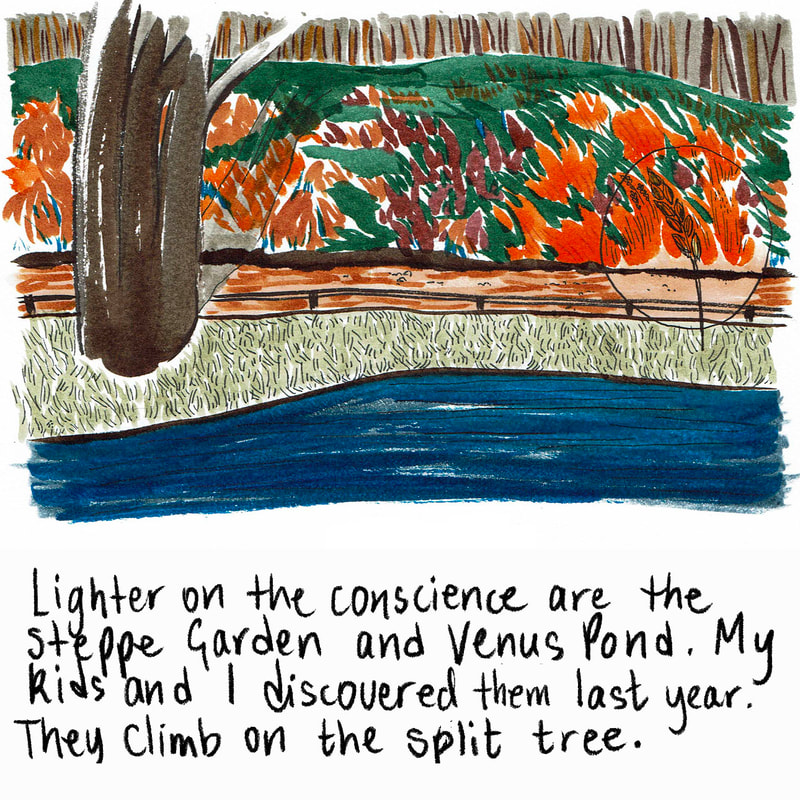 Lighter on the conscience are the
Steppe Garden and Venus Pond. My
kids and I discovered them last year.
They climb on the split tree.